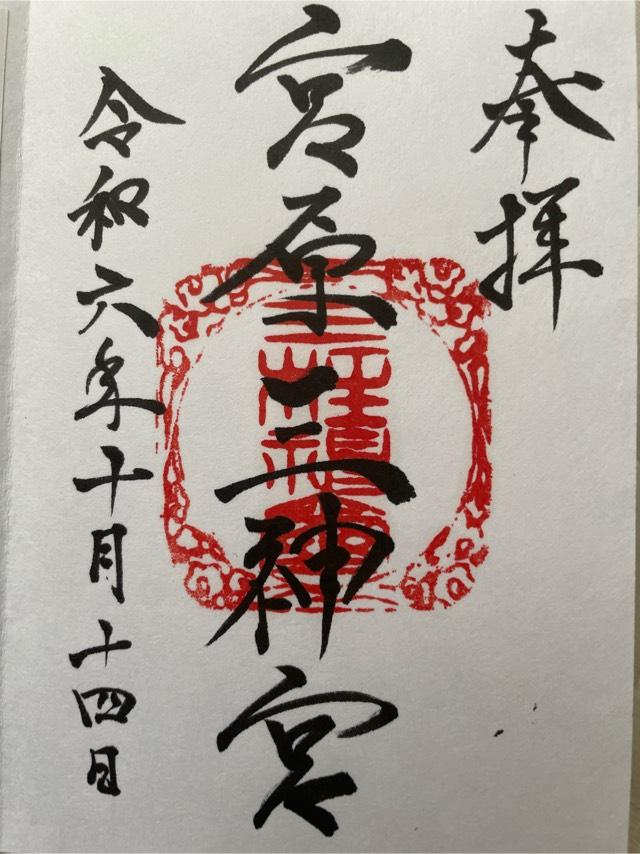 奉拝
宮原三神宮
令和六年十月十四日